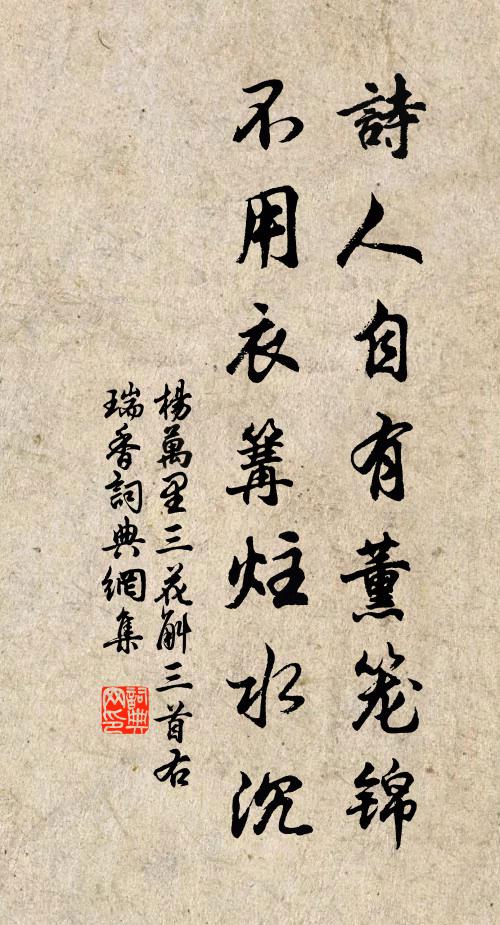 詩人自有薰笼锦
不用衣篝炷水沉
楊萬里三花斛三首右
瑞香詞典網集
詞典网印